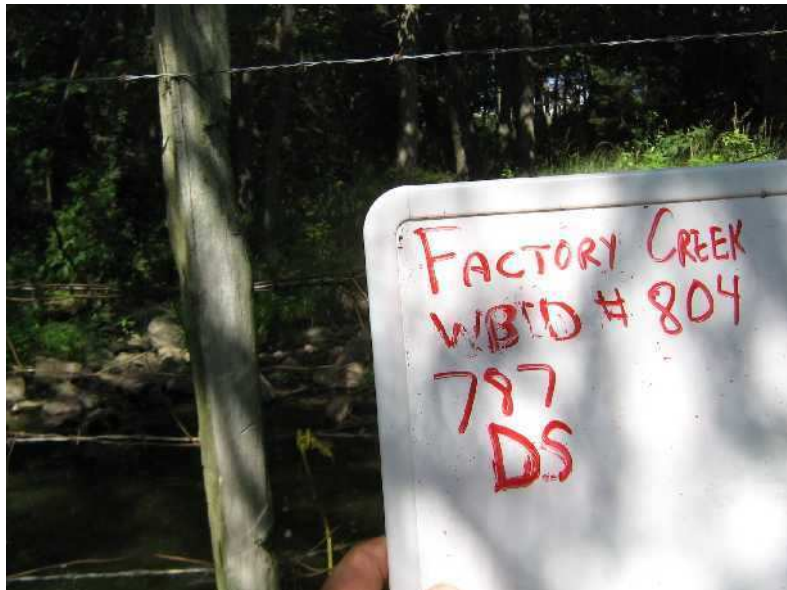 FACTORY CREEK
WBID # 804
787
DS